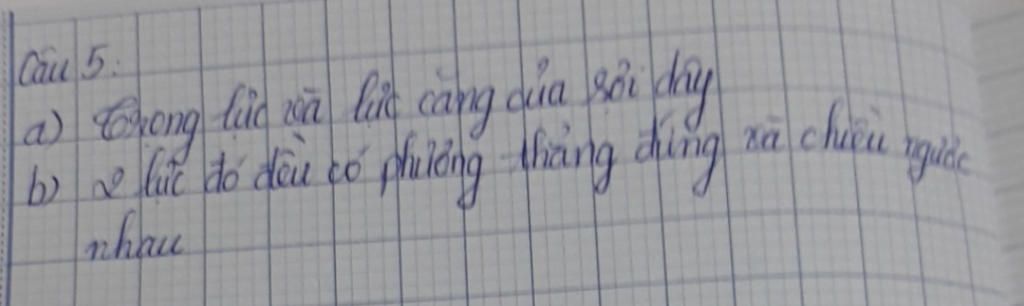 Câu 5:
a) Trọng lực và lực căng của sợi dây
b) 2 lực đó đều có phương thẳng đứng và chiều ngược
nhau